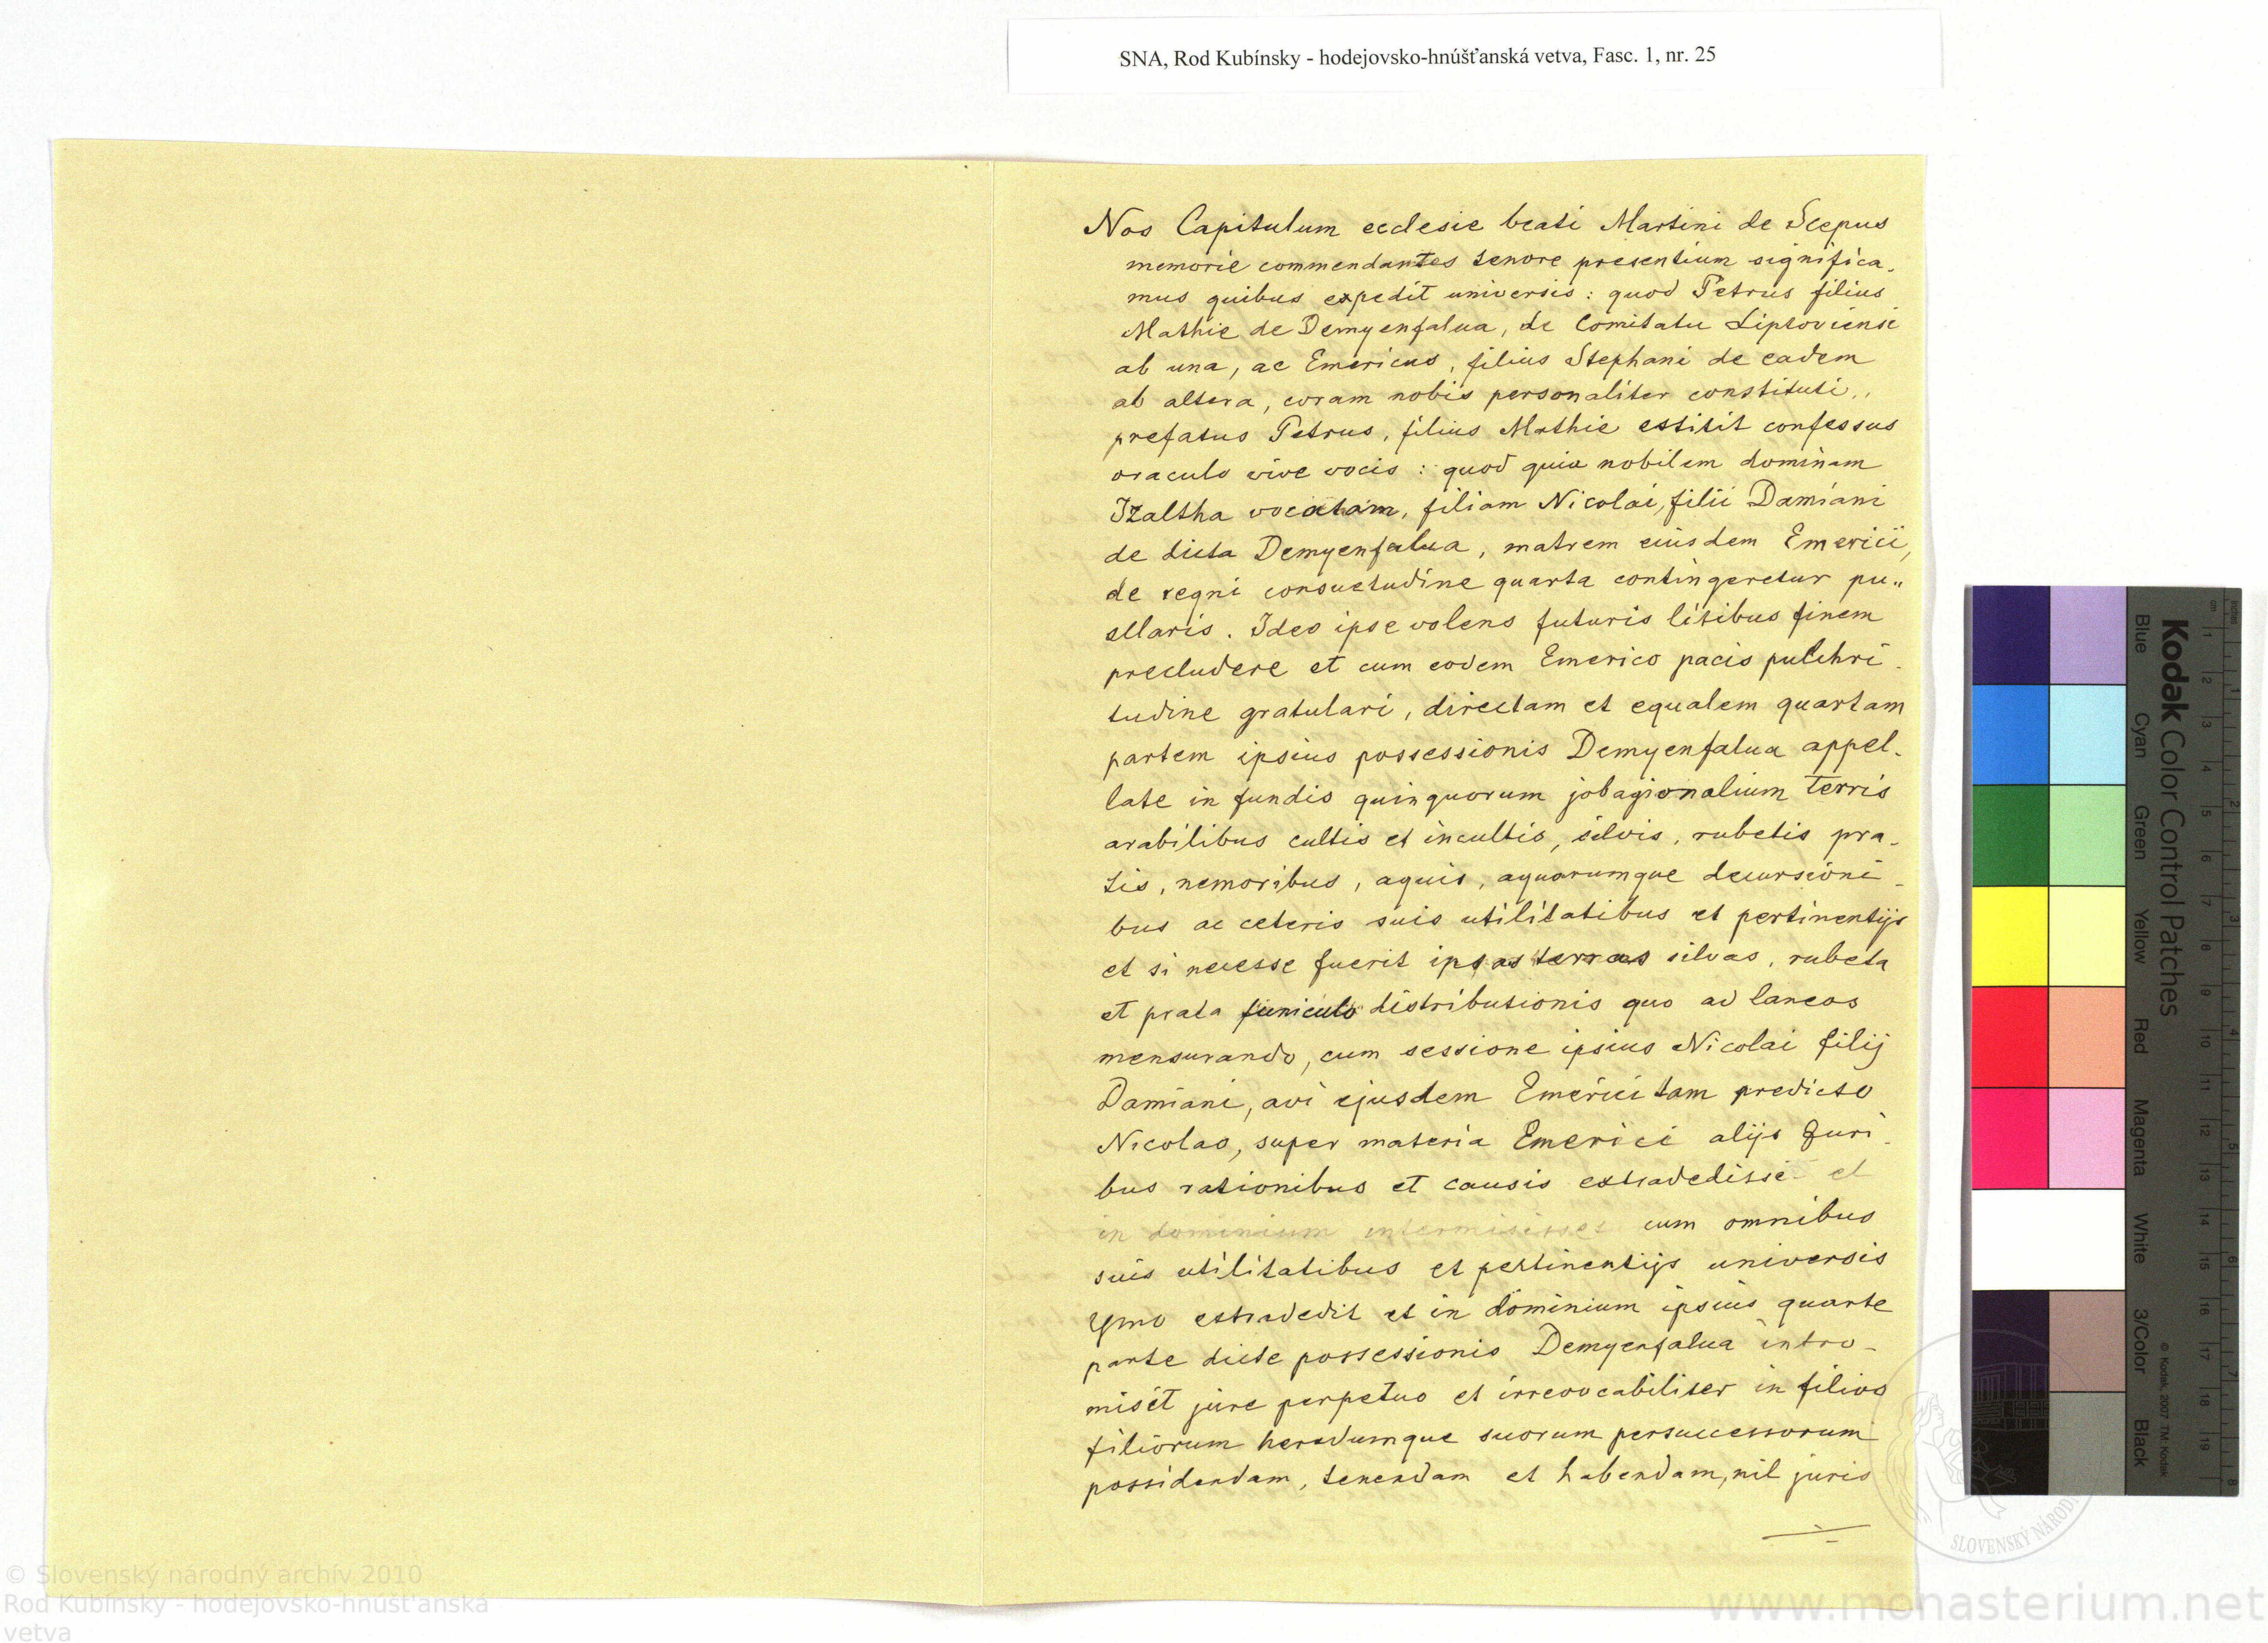 SNA, Rod Kubínsky - hodejovsko-hnúšťanská vetva, Fasc. 1, nr. 25
Nos Capitulum ecclesie beati Martini de Scepus
memorie commendantes tenore presentium significa-
mus quibus expedit universis : quod Petrus filius
Mathie de Demyenfalua, de Comitatu Liptoviensi
ab una, ac Emericus, filius Stephani de eadem
ab altera, coram nobis personaliter constituti,,
prefatus Petrus, filius Mathie estitit confessus
oraculo vive vocis : quod quia nobilem dominam
Izaltha vocatam, filiam Nicolai, filii Damiani
de dicta Demyenfalua, matrem eiusdem Emerici,
de regni consuetudine quarta contingeretur pu„
ellaris. Ideo ipse volens futuris litibus finem
precludere et cum eodem Emerico pacis pulchri-
tudine gratulari, directam et equalem quartam
partem ipsius possessionis Demyenfalua appel-
late in fundis quinquorum jobagionalium terris
arabilibus cultis et incultis, silvis, rubetis pra-
tis, nemoribus, aquis, aquarumque decursioni-
bus ac ceteris suis utilitatibus et pertinentijs
et si necesse fuerit ipsas terras silvas, rubeta
et prata funiculo distributionis quo ad laneos
mensurando, cum sessione ipsius Nicolai filij
Damiani, avi ejusdem Emerici tam predicto
Nicolao, super materia Emerici alijs Juri-
bus rationibus et causis extradedisse et
in dominium intermisisset cum omnibus
suis utilitatibus et pertinentijs universis
Ymo estradedit et in dominium ipsius quarte
parte dicte possessionis Demyenfalua intro-
misit jure perpetuo et irrevocabiliter in filios
filiorum heredumque suorum persuccessorum
possidendam, tenendam et habendam, nil juris
Kodak Color Control Patches
Blue Cyan Green Yellow Red Magenta White 3/Color Black
© Kodak, 2007 TM: Kodak
SLOVENSKÝ NÁROD
© Slovenský národný archív 2010
Rod Kubínsky - hodejovsko-hnúšťanská
vetva
www.monasterium.net